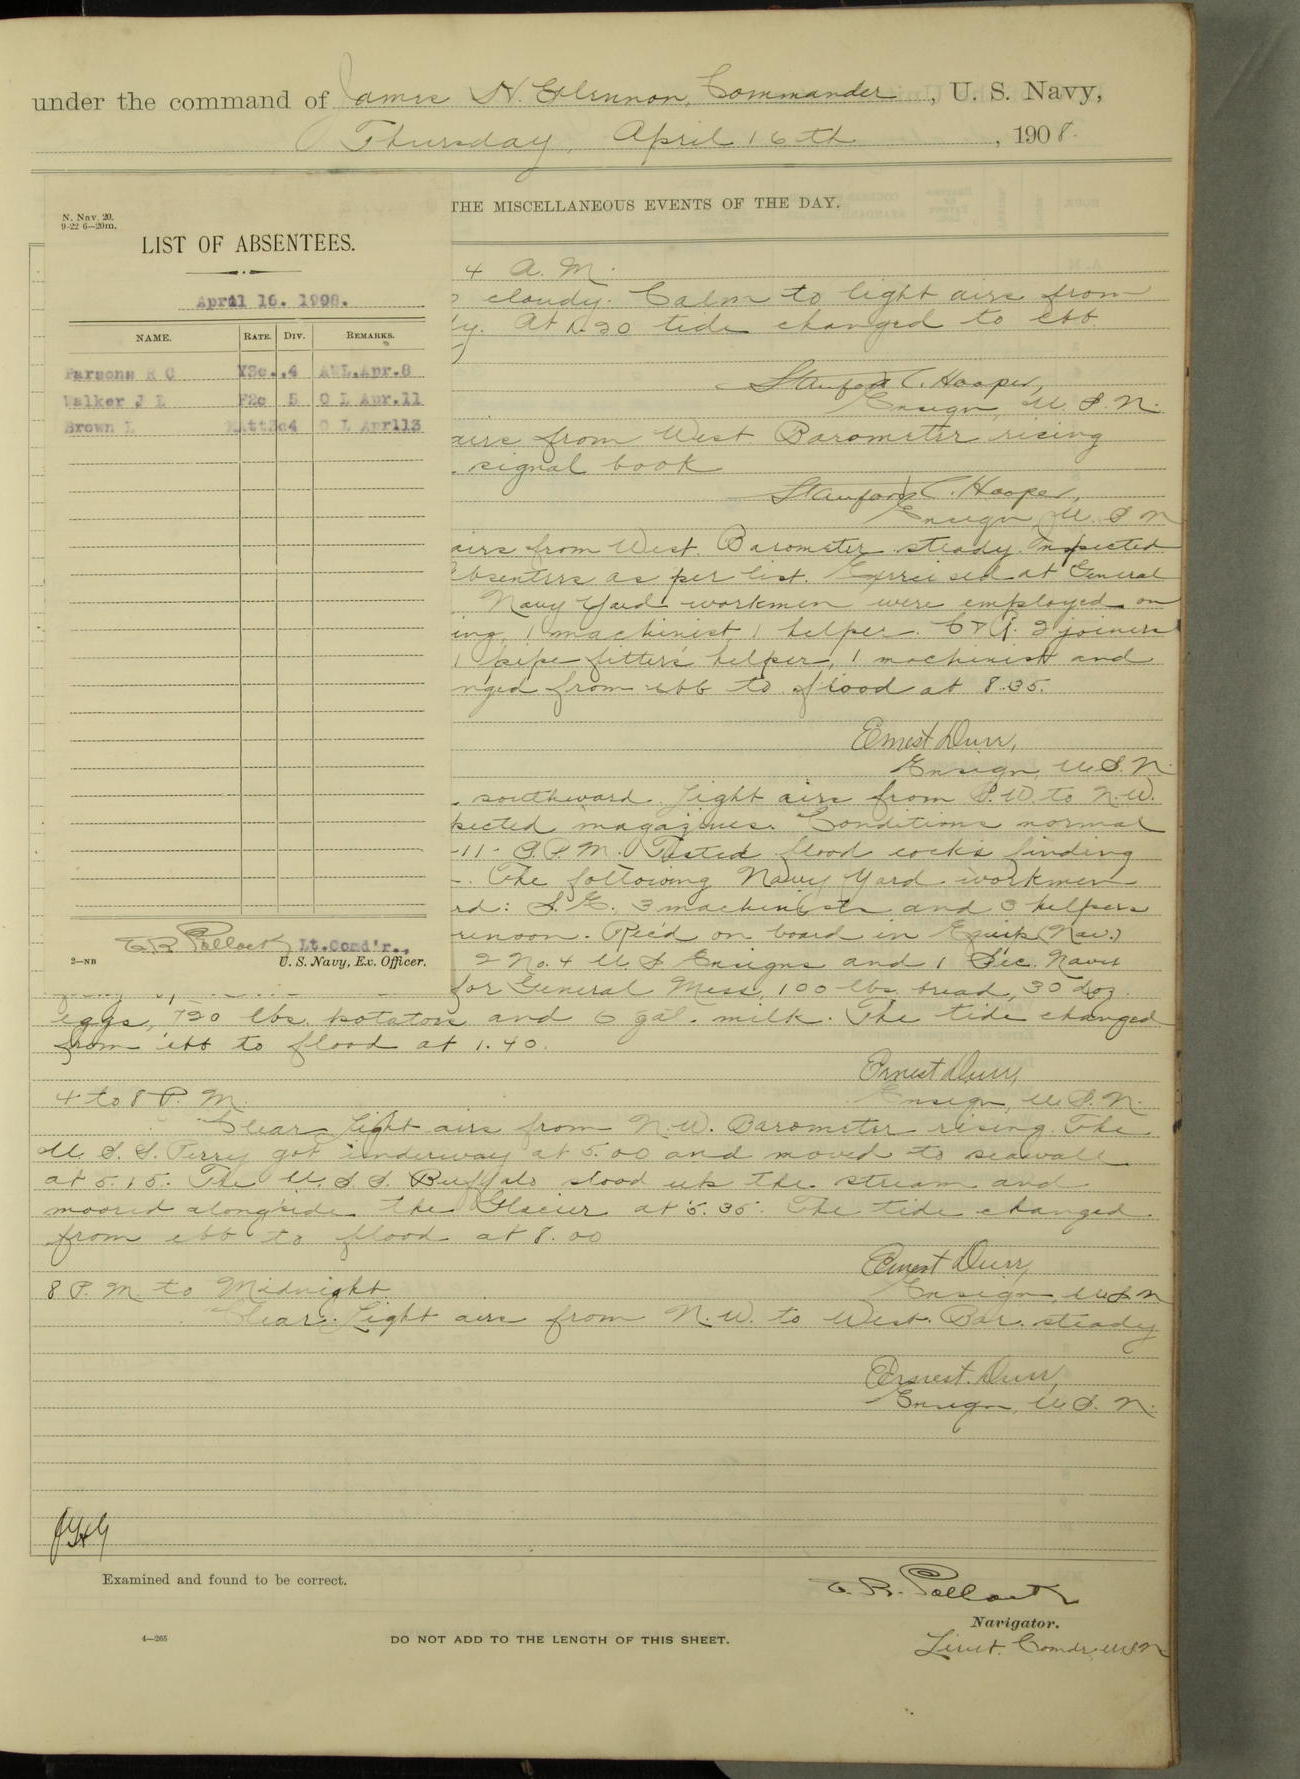 under the command of James H. Glennon, Commander, U. S. Navy,
Thursday, April 16th, 1908.
THE MISCELLANEOUS EVENTS OF THE DAY.
N. Nav. 20.
9-22 6—20m.
LIST OF ABSENTEES.
April 16. 1908.
NAME. RATE. DIV. REMARKS.
Parsons R C Y3c. .4 AWL.Apr.8
Walker J E F2c 5 O L Apr.11
Brown L MAtt3c4 O L Aprl13
E. R. Pollock Lt.Comd'r.,
2—NB U. S. Navy, Ex. Officer.
4 A. M.
cloudy. Calm to light airs from
At 1.20 tide changed to ebb
Stanford C. Hooper,
Ensign, U. S. N.
airs from West. Barometer rising
signal book
Stanford C. Hooper,
Ensign, U. S. N
airs from West. Barometer steady. Inspected
absentees as per list. Exercised at General
Navy Yard workmen were employed on
ing, 1 machinist 1 helper. C & R. 2 joiners
1 pipe fitters helper, 1 machinist and
nged from ebb to flood at 8.35.
Ernest Durr,
Ensign, U. S. N.
southward. Light airs from S.W. to N.W.
pected magazines. Conditions normal
Tested flood cocks finding
The following Navy Yard workmen
rd: S. E. 3 machinists and 3 helpers
renoon. Rec'd on board in Equip (Nav.)
2 No. 4 U S Ensigns and 1 Sec. Navy
for General Mess, 100 lbs. bread, 30 doz.
eggs, 720 lbs. potatoes and 6 gal. milk. The tide changed
from ebb to flood at 1.40.
Ernest Durr,
4 to 8 P. M. Ensign, U. S. N.
Clear. Light airs from N.W. Barometer rising. The
U. S. S. Perry got underway at 5.00 and moved to seawall
at 5.15. The U. S. S. Buffalo stood up the stream and
moored alongside the Glacier at 5.35. The tide changed
from ebb to flood at 8.00
Ernest Durr,
8 P. M. to Midnight Ensign, U S N
Clear. Light airs from N.W. to West. Bar. steady
Ernest Durr,
Ensign, U. S. N.
JHG
Examined and found to be correct.
E. R. Pollock
Navigator.
4—265 DO NOT ADD TO THE LENGTH OF THIS SHEET.
Lieut. Comdr. USN